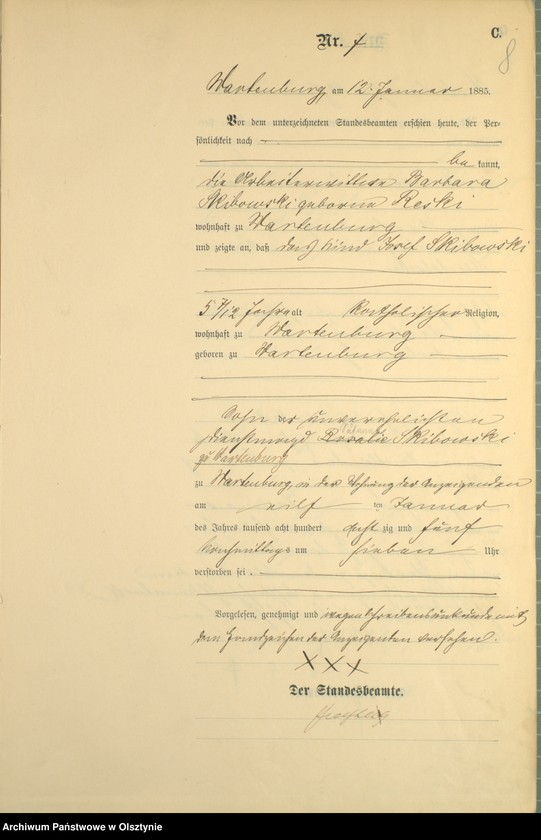 C.
8
Nr. 7
Wartenburg, am 12. Januar 1885.
Vor dem unterzeichneten Standesbeamten erschien heute, der Per-
sönlichkeit nach
be kannt,
die Arbeiterwittwe Barbara
Skibowski geborene Reski
wohnhaft zu Wartenburg
und zeigte an, daß das Kind Josef Skibowski
5 7/12 Jahre alt Katholischer Religion,
wohnhaft zu Wartenburg
geboren zu Wartenburg
Sohn der unverehelichten
Dienstmagd Rosalie Skibowski
zu Wartenburg
zu Wartenburg, in der Wohnung der Anzeigenden
am eilf ten Januar
des Jahres tausend acht hundert acht zig und fünf
Nachmittags um sieben Uhr
verstorben sei.
Vorgelesen, genehmigt und wegen Schreibensunkunde mit
dem Handzeichen der Anzeigenden versehen.
XXX
Der Standesbeamte.
Archiwum Państwowe w Olsztynie